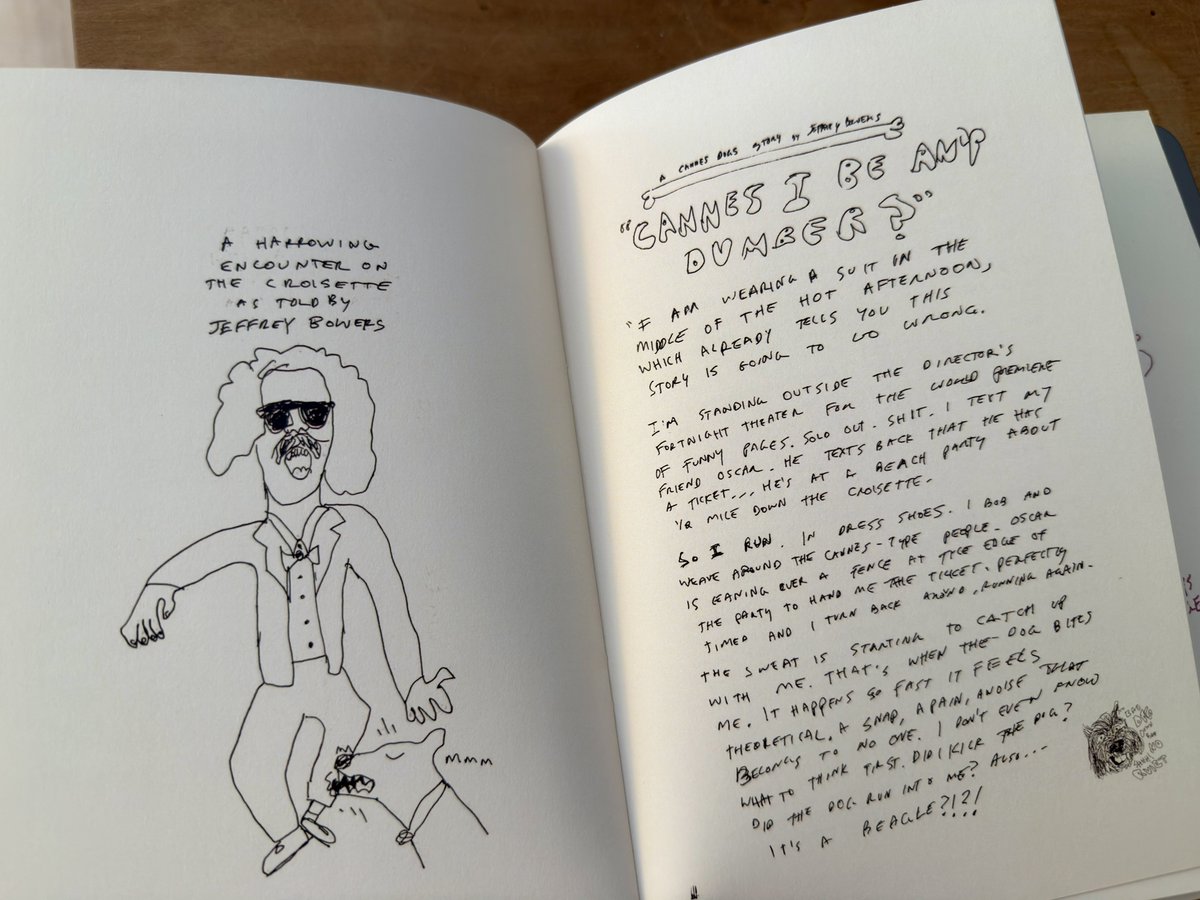 A HARROWING
ENCOUNTER ON
THE CROISETTE
AS TOLD BY
JEFFREY BOWERS
MMM
A CANNES DOGS STORY BY JEFFREY BOWERS
"CANNES I BE ANY
DUMBER?"
"I AM WEARING A SUIT IN THE
MIDDLE OF THE HOT AFTERNOON,
WHICH ALREADY TELLS YOU THIS
STORY IS GOING TO GO WRONG.
I'M STANDING OUTSIDE THE DIRECTOR'S
FORTNIGHT THEATER FOR THE WORLD PREMIERE
OF FUNNY PAGES. SOLD OUT. SHIT. I TEXT MY
FRIEND OSCAR. HE TEXTS BACK THAT HE HAS
A TICKET... HE'S AT A BEACH PARTY ABOUT
MILE DOWN THE CROISETTE.
SO I RUN. IN DRESS SHOES. I BOB AND
WEAVE AROUND THE CANNES-TYPE PEOPLE. OSCAR
IS LEANING OVER A FENCE AT THE EDGE OF
THE PARTY TO HAND ME THE TICKET. PERFECTLY
TIMED AND I TURN BACK AROUND, RUNNING AGAIN.
THE SWEAT IS STARTING TO CATCH UP
WITH ME. THAT'S WHEN THE DOG BITES
ME. IT HAPPENS SO FAST IT FEELS
THEORETICAL. A SNAP, A PAIN, A NOISE THAT
BELONGS TO NO ONE. I DON'T EVEN KNOW
WHAT TO THINK FIRST. DID I KICK THE DOG?
DID THE DOG RUN INTO ME? ALSO...
IT'S A BEAGLE?!?!